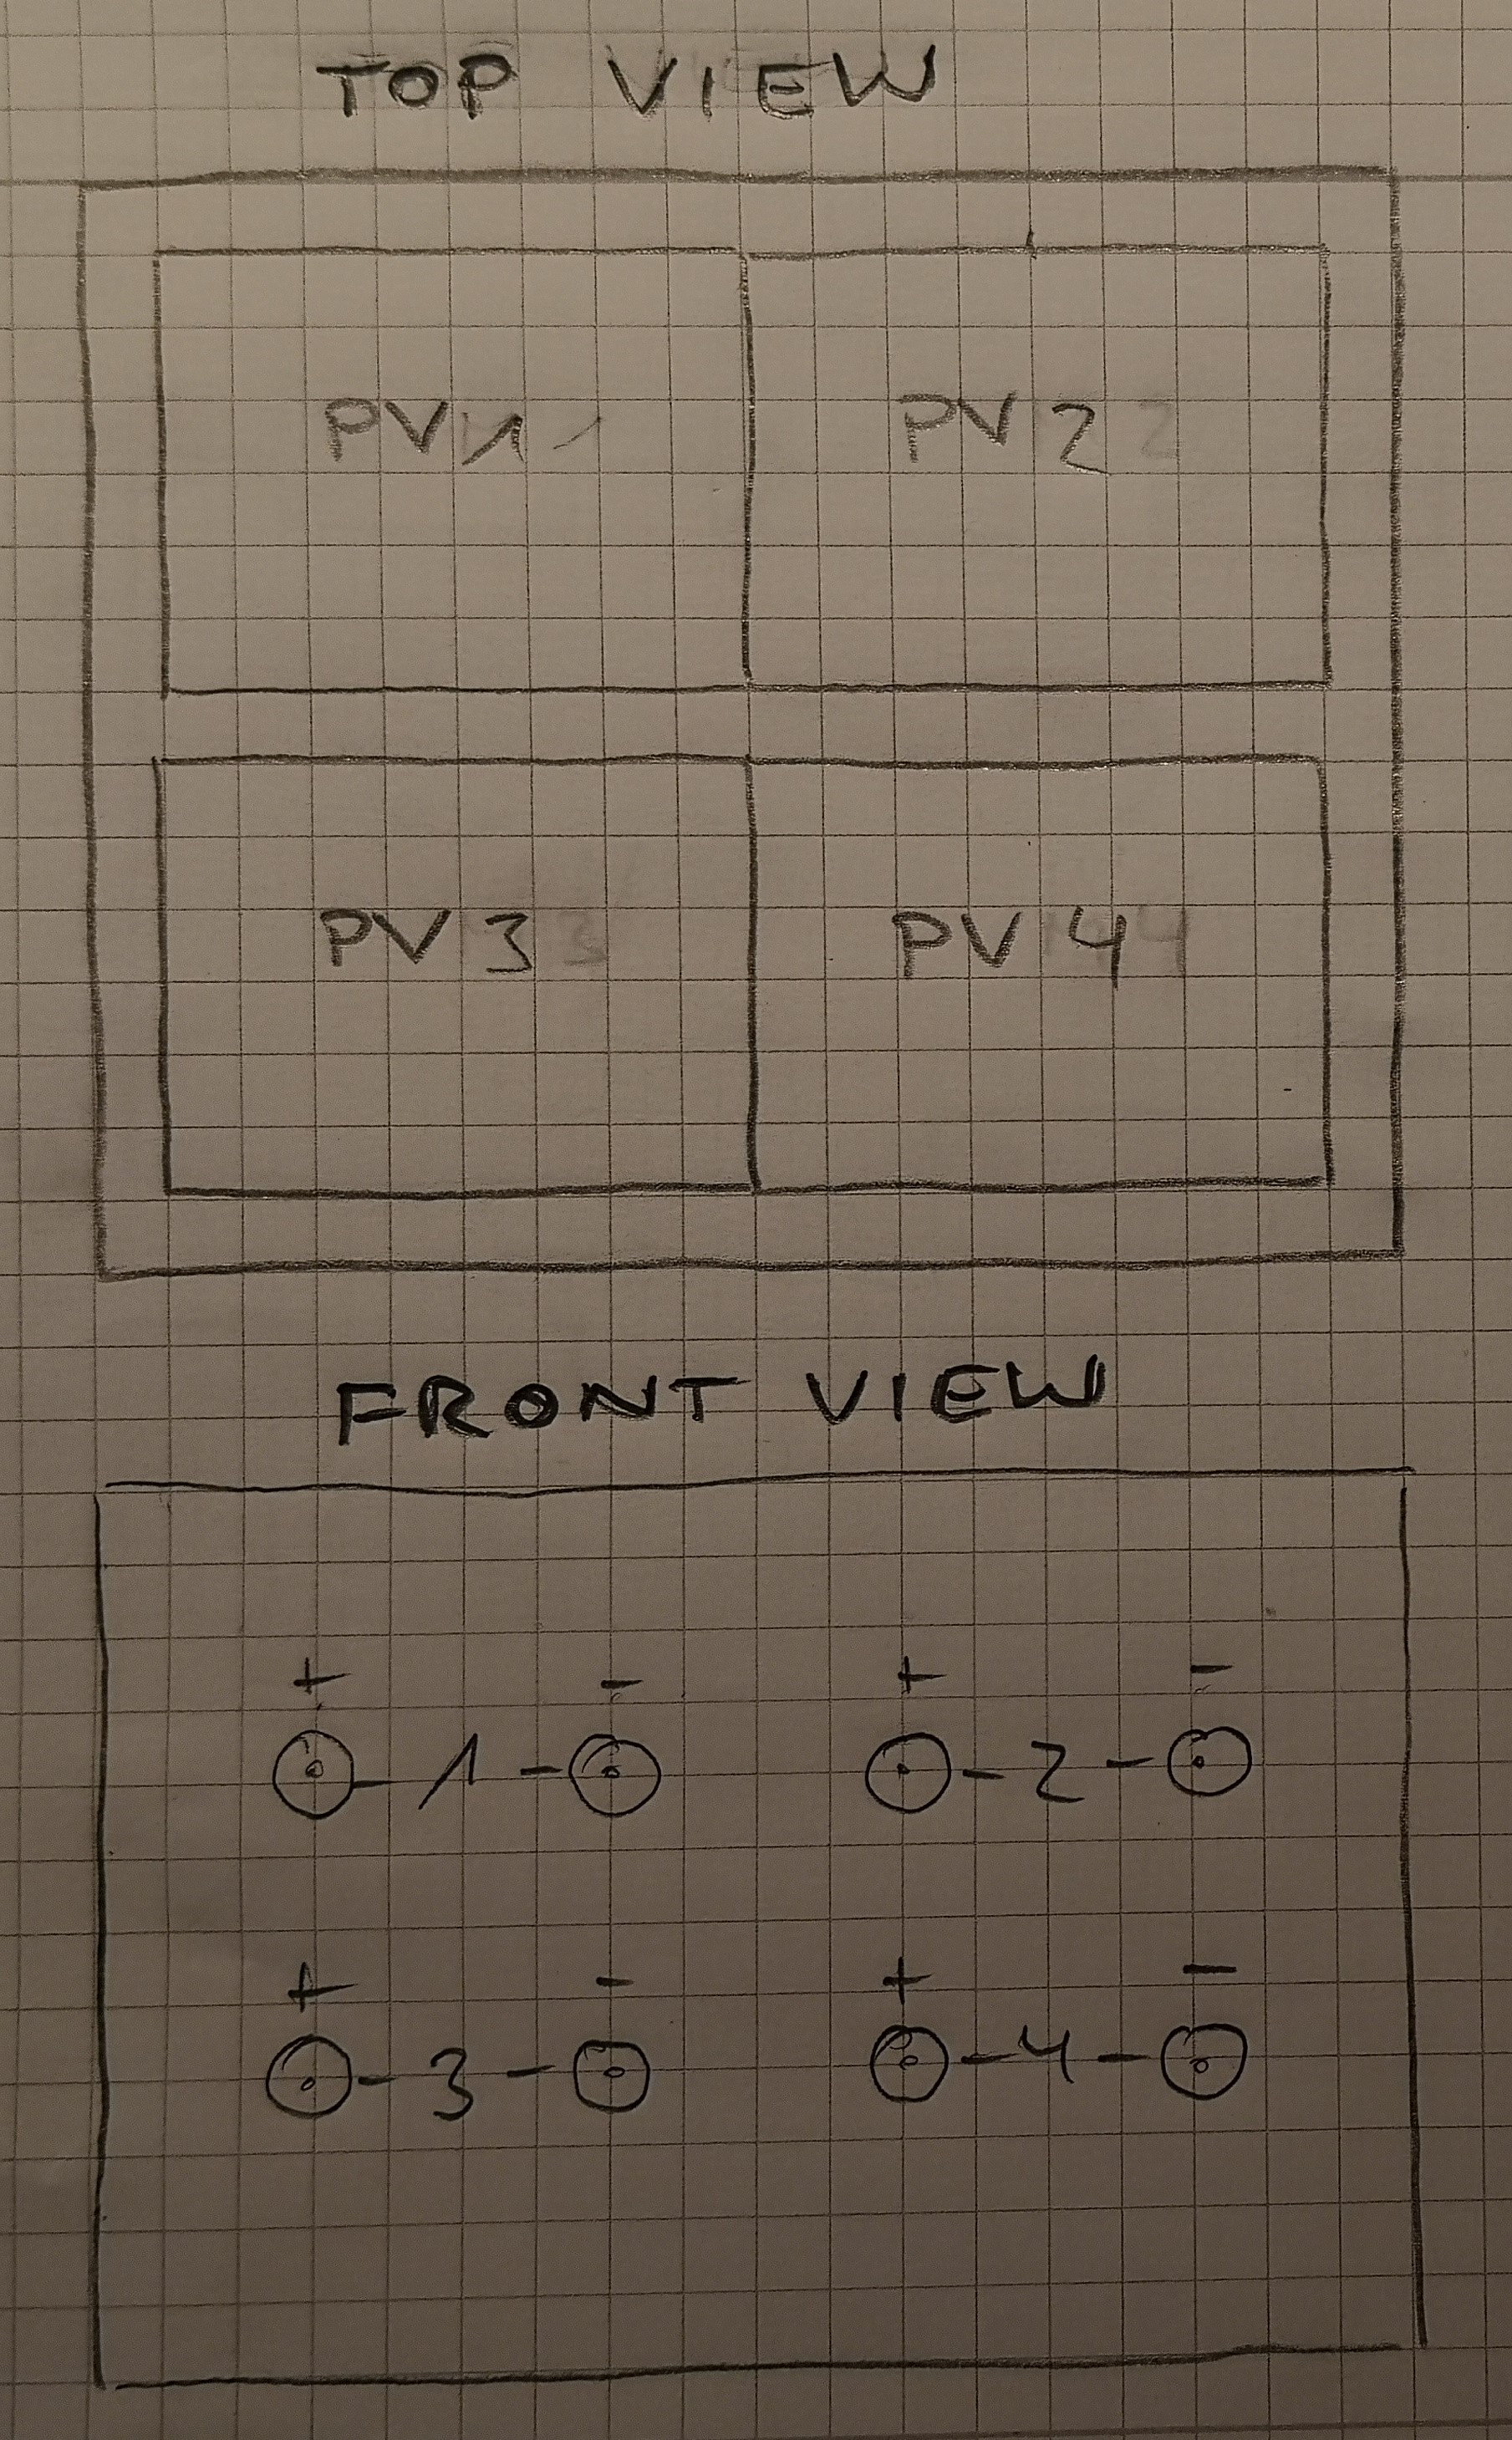 TOP VIEW
PV 1
PV 2
PV 3
PV 4
FRONT VIEW
+ - + -
- 1 - - 2 -
+ - + -
- 3 - - 4 -